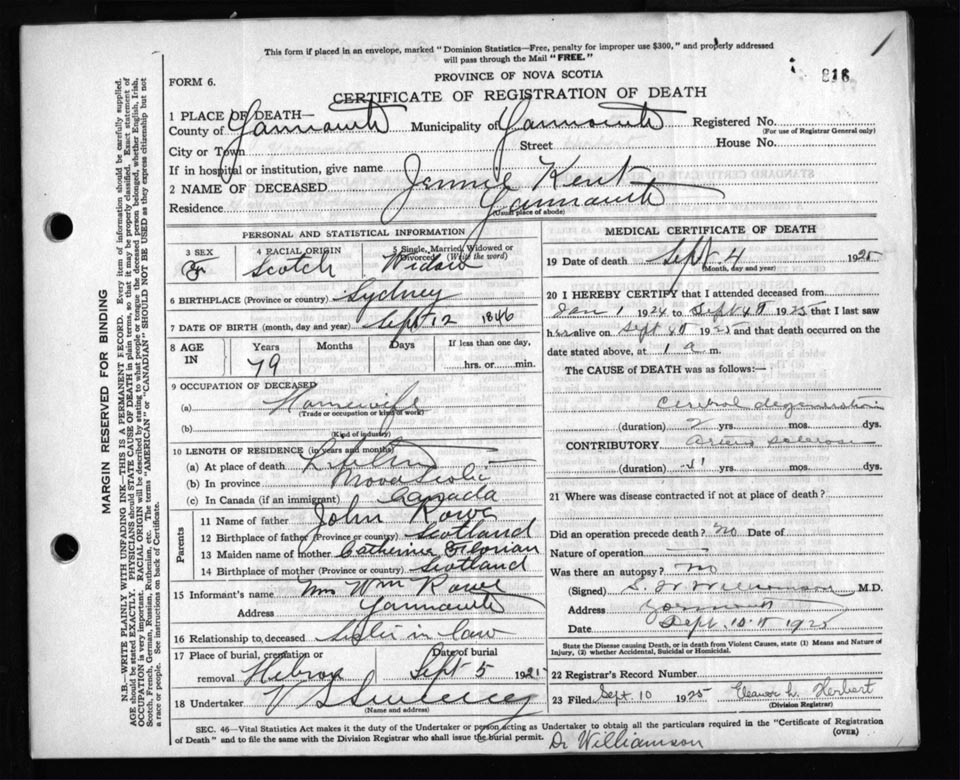 This form if placed in an envelope, marked "Dominion Statistics—Free, penalty for improper use $300," and properly addressed
will pass through the Mail "FREE."
FORM 6.
PROVINCE OF NOVA SCOTIA
816
CERTIFICATE OF REGISTRATION OF DEATH
1 PLACE OF DEATH—
County of Yarmouth Municipality of Yarmouth Registered No.
(For use of Registrar General only)
City or Town Street House No.
If in hospital or institution, give name
2 NAME OF DECEASED Jennie Kent
Residence Yarmouth
(Usual place of abode)
PERSONAL AND STATISTICAL INFORMATION
3 SEX 4 RACIAL ORIGIN Scotch 5 Single, Married, Widowed or Divorced (Write the word) Widow
6 BIRTHPLACE (Province or country) Sydney
7 DATE OF BIRTH (month, day and year) Sept 12 1846
8 AGE IN Years 79 Months Days If less than one day, hrs. or min.
9 OCCUPATION OF DECEASED
(a) Housewife
(Trade or occupation or kind of work)
(b)
(Kind of industry)
10 LENGTH OF RESIDENCE (in years and months)
(a) At place of death
(b) In province Nova Scotia
(c) In Canada (if an immigrant) Canada
Parents
11 Name of father John Rowe
12 Birthplace of father (Province or country) Scotland
13 Maiden name of mother Catherine
14 Birthplace of mother (Province or country) Scotland
15 Informant's name Mrs Wm Rowe
Address Yarmouth
16 Relationship to deceased Sister in law
17 Place of burial, cremation or removal Hebron Date of burial Sept 5 1925
18 Undertaker V S Sweeney
(Name and address)
MEDICAL CERTIFICATE OF DEATH
19 Date of death Sept 4 1925
(Month, day and year)
20 I HEREBY CERTIFY that I attended deceased from
Jan 1 1924 to Sept 4th 1925 that I last saw
her alive on Sept 4th 1925 and that death occurred on the
date stated above, at 1 a m.
The CAUSE of DEATH was as follows:—
degeneration
(duration) 2 yrs. mos. dys.
CONTRIBUTORY Arterio sclerosis
(duration) yrs. mos. dys.
21 Where was disease contracted if not at place of death?
Did an operation precede death? No Date of
Nature of operation —
Was there an autopsy? No
(Signed) S. W Williamson M.D.
Address Yarmouth
Date Sept. 10th 1925
State the Disease causing Death, or in death from Violent Causes, state (1) Means and Nature of
Injury, (2) whether Accidental, Suicidal or Homicidal.
22 Registrar's Record Number
23 Filed Sept. 10 1925 Eleanor L. Herbert
(Division Registrar)
SEC. 46—Vital Statistics Act makes it the duty of the Undertaker or person acting as Undertaker to obtain all the particulars required in the "Certificate of Registration
of Death" and to file the same with the Division Registrar who shall issue the burial permit.
(OVER)
Dr Williamson
MARGIN RESERVED FOR BINDING
N.B.—WRITE PLAINLY WITH UNFADING INK—THIS IS A PERMANENT RECORD. Every item of information should be carefully supplied.
AGE should be stated EXACTLY. PHYSICIANS should STATE CAUSE OF DEATH in plain terms, so that it may be properly classified. Exact statement of
OCCUPATION is very important. RACIAL ORIGIN will be described by stating to what people or tongue the deceased person belonged, whether English, Irish,
Scotch, French, German, Russian, Ruthenian, etc. The terms "AMERICAN" or "CANADIAN" SHOULD NOT BE USED as they express citizenship but not
a race or people. See instructions on back of Certificate.